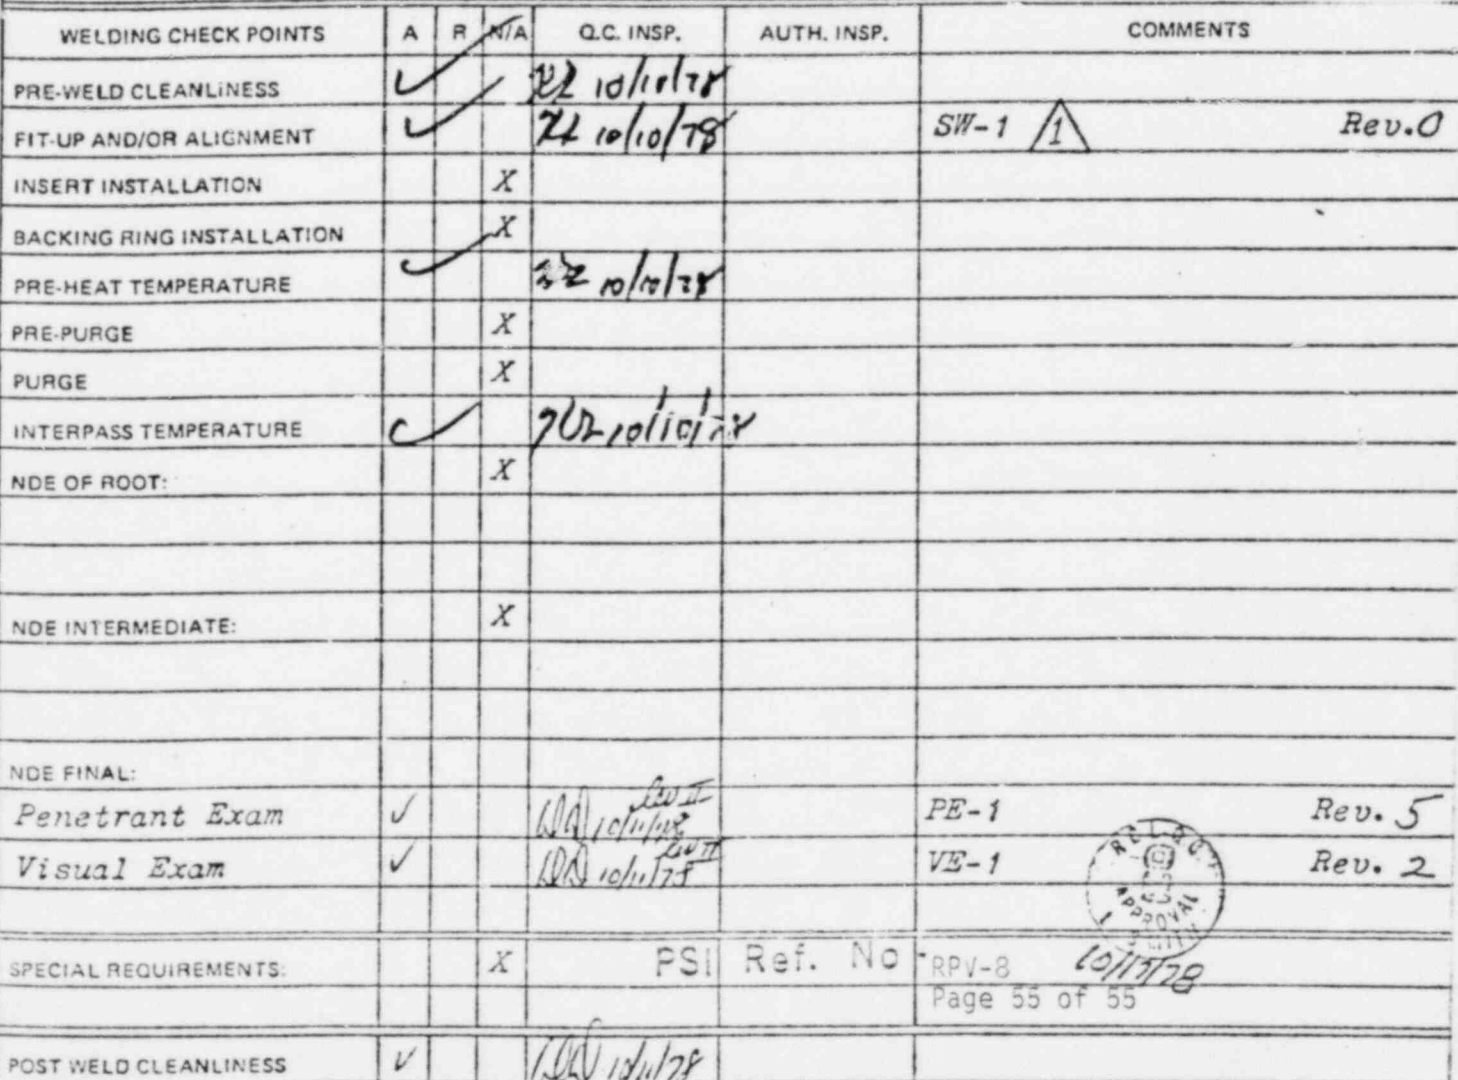 WELDING CHECK POINTS A R N/A Q.C. INSP. AUTH. INSP. COMMENTS
PRE-WELD CLEANLINESS ✓ 10/10/78
FIT-UP AND/OR ALIGNMENT ✓ 10/10/78 SW-1 1 Rev.0
INSERT INSTALLATION X
BACKING RING INSTALLATION X
PRE-HEAT TEMPERATURE ✓ 10/10/78
PRE-PURGE X
PURGE X
INTERPASS TEMPERATURE ✓ 10/10/78
NDE OF ROOT: X
NDE INTERMEDIATE: X
NDE FINAL:
Penetrant Exam ✓ Lev II 10/11/78 PE-1 Rev. 5
Visual Exam ✓ Lev II 10/11/78 VE-1 Rev. 2
APPROVAL
SPECIAL REQUIREMENTS: X PSI Ref. No RPV-8 10/17/78
Page 55 of 55
POST WELD CLEANLINESS ✓ 10/11/78